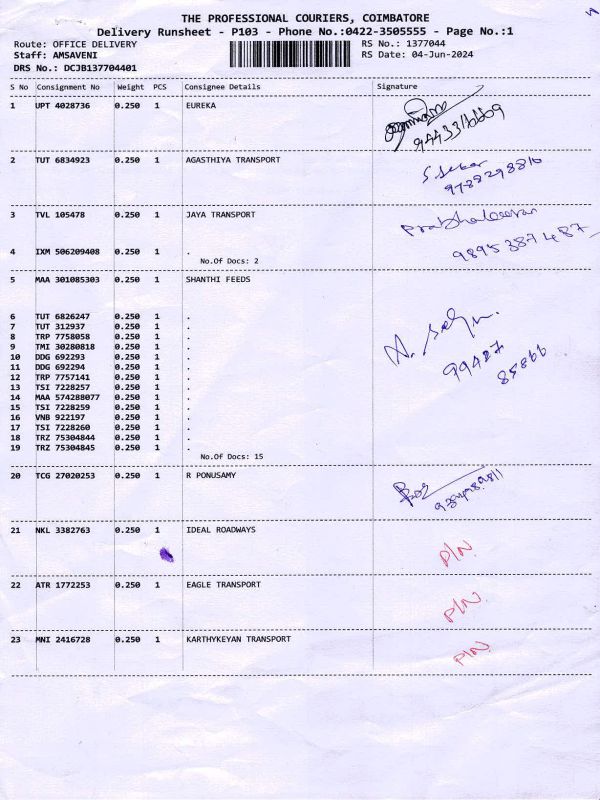 THE PROFESSIONAL COURIERS, COIMBATORE
Delivery Runsheet - P103 - Phone No.:0422-3505555 - Page No.:1
Route: OFFICE DELIVERY RS No.: 1377044
Staff: AMSAVENI RS Date: 04-Jun-2024
DRS No.: DCJB137704401
S No Consignment No Weight PCS Consignee Details Signature
1 UPT 4028736 0.250 1 EUREKA
9443316669
2 TUT 6834923 0.250 1 AGASTHIYA TRANSPORT
S. Sekar
9788298816
3 TVL 105478 0.250 1 JAYA TRANSPORT
Prabhakaran
9895 387 487
4 IXM 506209408 0.250 1 .
No.Of Docs: 2
5 MAA 301085303 0.250 1 SHANTHI FEEDS
6 TUT 6826247 0.250 1 .
7 TUT 312937 0.250 1 .
8 TRP 7758058 0.250 1 .
9 TMI 30280818 0.250 1 .
10 DDG 692293 0.250 1 .
11 DDG 692294 0.250 1 .
12 TRP 7757141 0.250 1 .
13 TSI 7228257 0.250 1 .
14 MAA 574288077 0.250 1 .
15 TSI 7228259 0.250 1 .
16 VNB 922197 0.250 1 .
17 TSI 7228260 0.250 1 .
18 TRZ 75304844 0.250 1 .
19 TRZ 75304845 0.250 1 .
99487
85866
No.Of Docs: 15
20 TCG 27020253 0.250 1 R PONUSAMY
21 NKL 3382763 0.250 1 IDEAL ROADWAYS
P/N
22 ATR 1772253 0.250 1 EAGLE TRANSPORT
P/N
23 MNI 2416728 0.250 1 KARTHYKEYAN TRANSPORT
P/N